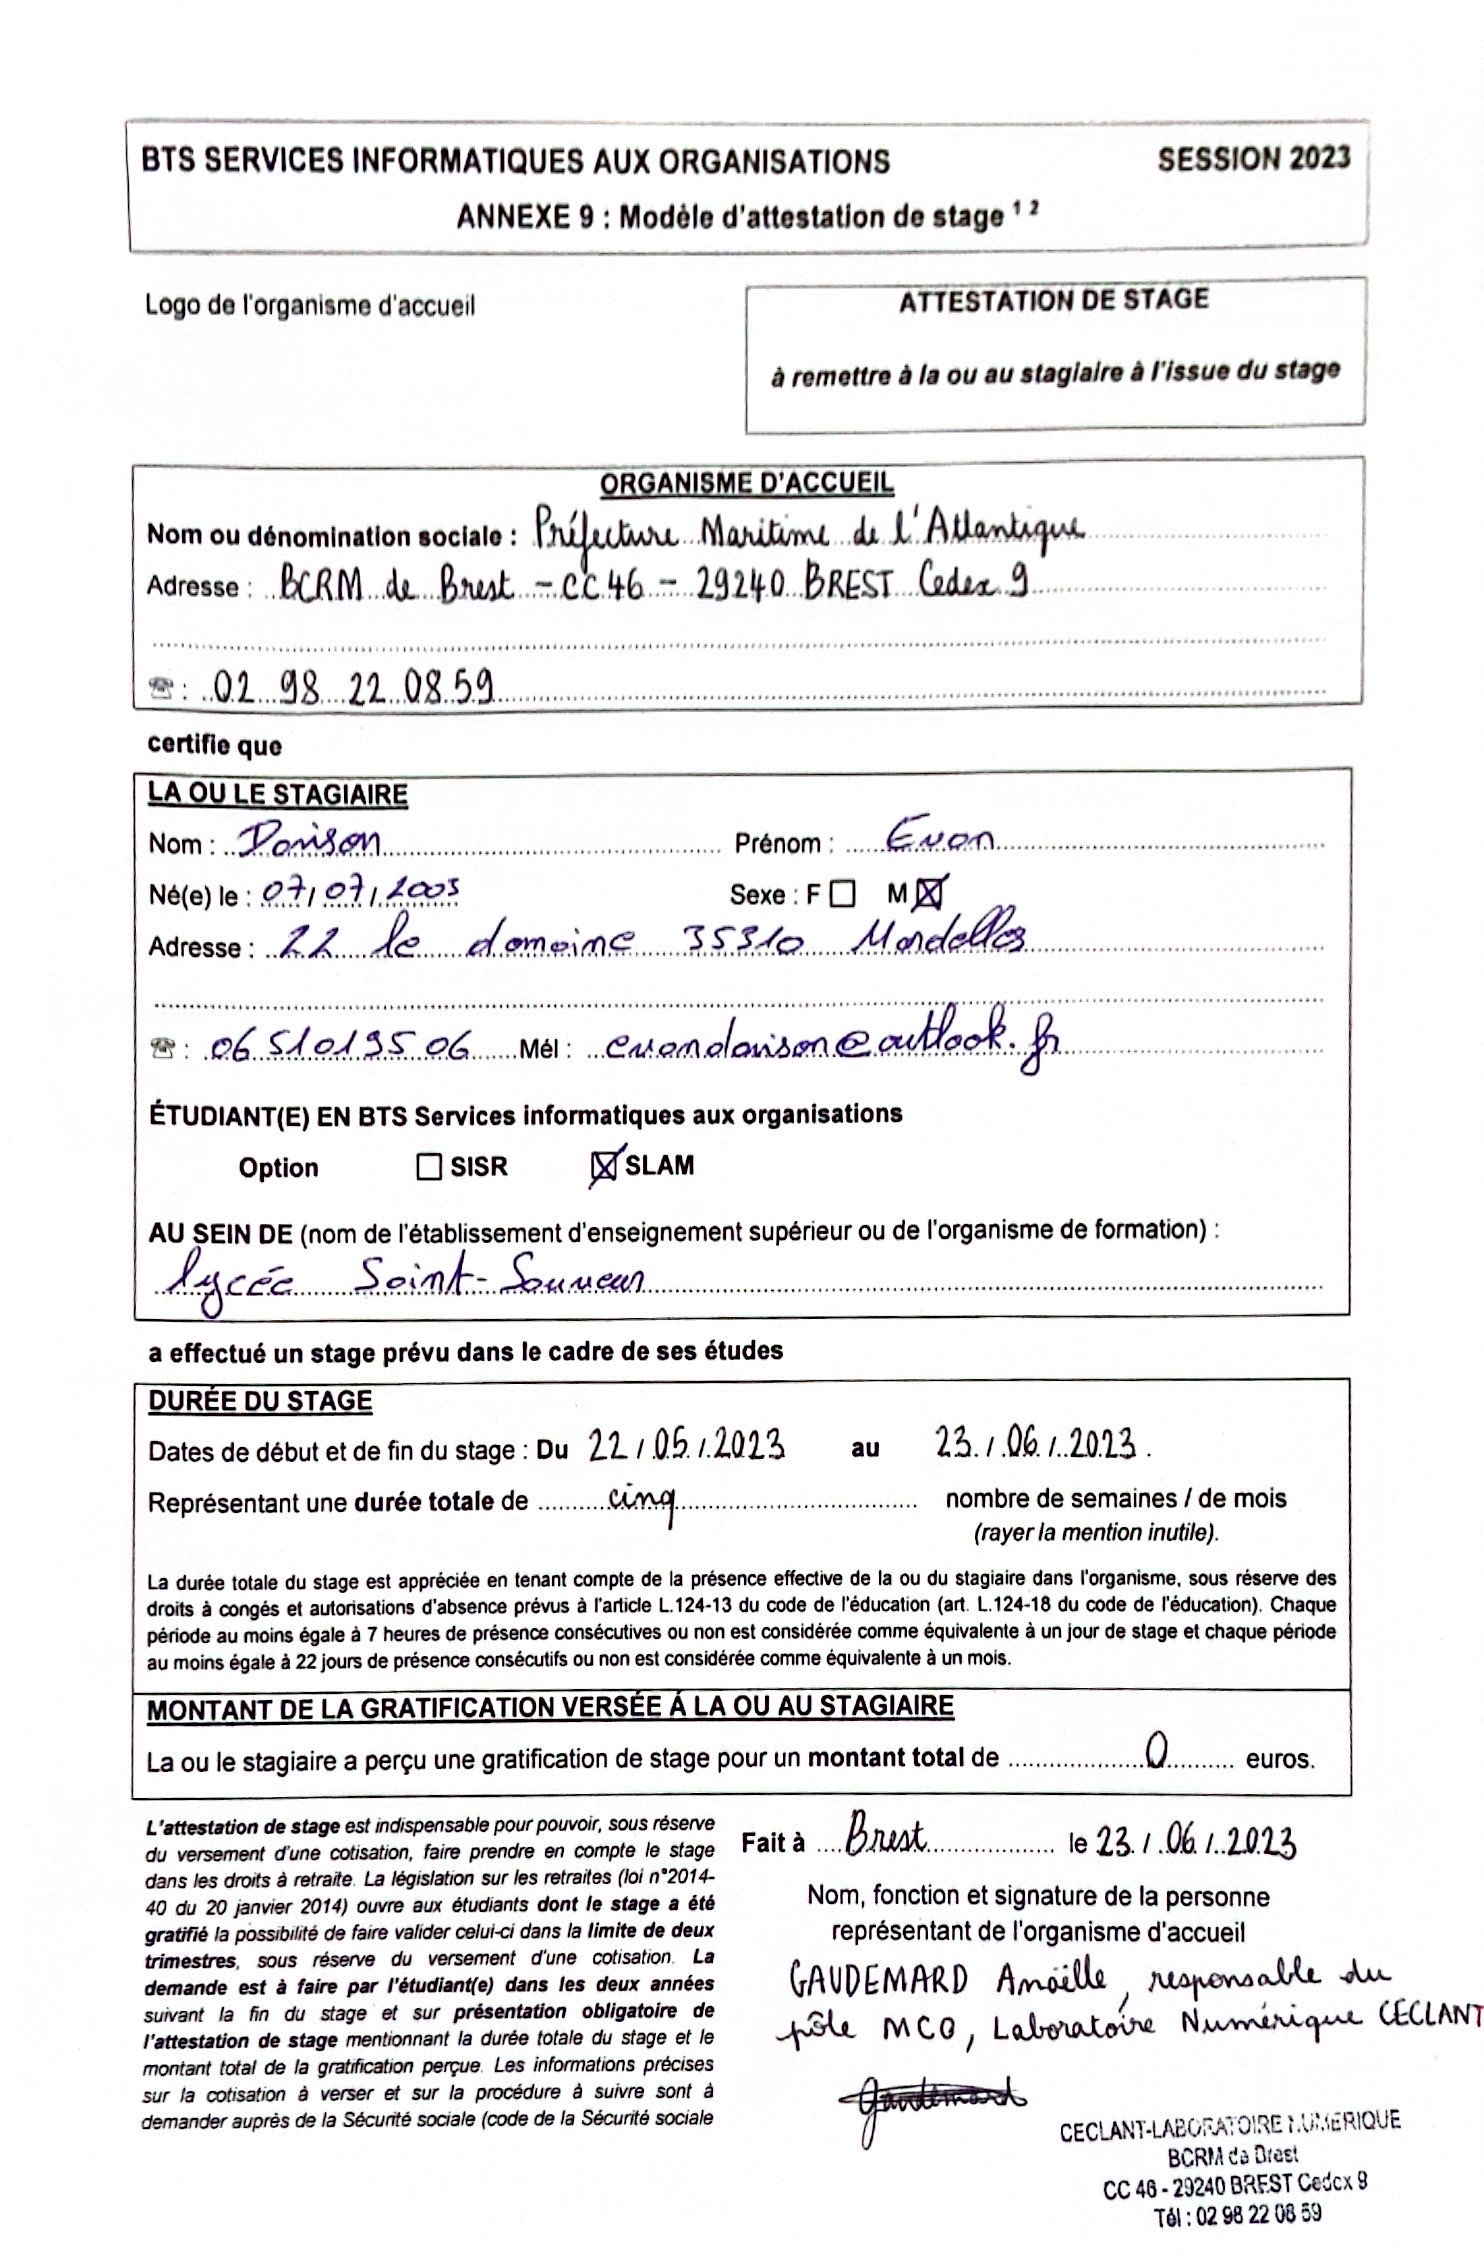 BTS SERVICES INFORMATIQUES AUX ORGANISATIONS SESSION 2023
ANNEXE 9 : Modèle d'attestation de stage 1 2
Logo de l'organisme d'accueil
ATTESTATION DE STAGE
à remettre à la ou au stagiaire à l'issue du stage
ORGANISME D'ACCUEIL
Nom ou dénomination sociale : Préfecture Maritime de l'Atlantique
Adresse : BCRM de Brest - CC 46 - 29240 BREST Cedex 9
☎ : 02 98 22 08 59
certifie que
LA OU LE STAGIAIRE
Nom : Davison Prénom : Evan
Né(e) le : 07/07/2003 Sexe : F ☐ M ☒
Adresse : 22 le domaine 35310 Mordelles
☎ : 06 51 01 95 06 Mél : evandavison@outlook.fr
ÉTUDIANT(E) EN BTS Services informatiques aux organisations
Option ☐ SISR ☒ SLAM
AU SEIN DE (nom de l'établissement d'enseignement supérieur ou de l'organisme de formation) :
lycée Saint-Sauveur
a effectué un stage prévu dans le cadre de ses études
DURÉE DU STAGE
Dates de début et de fin du stage : Du 22/05/2023 au 23/06/2023.
Représentant une durée totale de cinq nombre de semaines / de mois
(rayer la mention inutile).
La durée totale du stage est appréciée en tenant compte de la présence effective de la ou du stagiaire dans l'organisme, sous réserve des
droits à congés et autorisations d'absence prévus à l'article L.124-13 du code de l'éducation (art. L.124-18 du code de l'éducation). Chaque
période au moins égale à 7 heures de présence consécutives ou non est considérée comme équivalente à un jour de stage et chaque période
au moins égale à 22 jours de présence consécutifs ou non est considérée comme équivalente à un mois.
MONTANT DE LA GRATIFICATION VERSÉE À LA OU AU STAGIAIRE
La ou le stagiaire a perçu une gratification de stage pour un montant total de 0 euros.
L'attestation de stage est indispensable pour pouvoir, sous réserve
du versement d'une cotisation, faire prendre en compte le stage
dans les droits à retraite. La législation sur les retraites (loi n°2014-
40 du 20 janvier 2014) ouvre aux étudiants dont le stage a été
gratifié la possibilité de faire valider celui-ci dans la limite de deux
trimestres, sous réserve du versement d'une cotisation. La
demande est à faire par l'étudiant(e) dans les deux années
suivant la fin du stage et sur présentation obligatoire de
l'attestation de stage mentionnant la durée totale du stage et le
montant total de la gratification perçue. Les informations précises
sur la cotisation à verser et sur la procédure à suivre sont à
demander auprès de la Sécurité sociale (code de la Sécurité sociale
Fait à Brest le 23/06/2023
Nom, fonction et signature de la personne
représentant de l'organisme d'accueil
GAUDEMARD Anaëlle, responsable du
pôle MCO, Laboratoire Numérique CECLANT
Gaudemard
CECLANT-LABORATOIRE NUMERIQUE
BCRM de Brest
CC 46 - 29240 BREST Cedex 9
Tél : 02 98 22 08 59